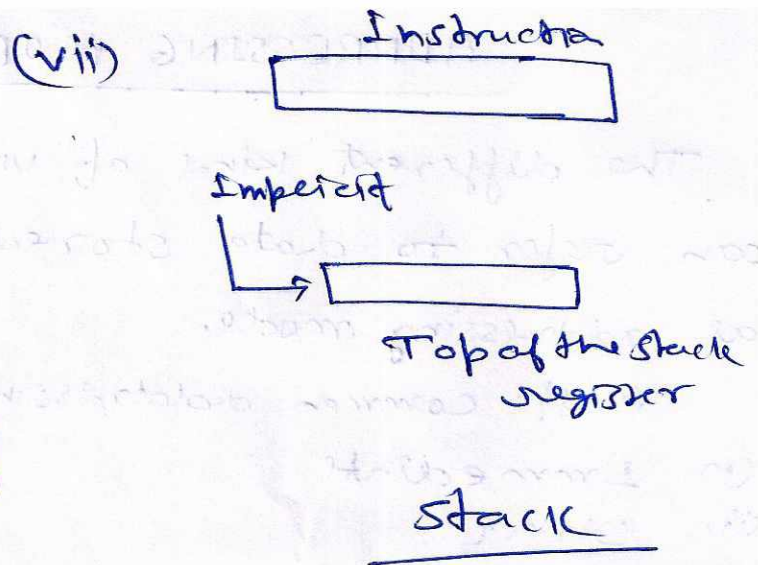 (vii) Instruction
Implicit
Top of the stack
register
Stack